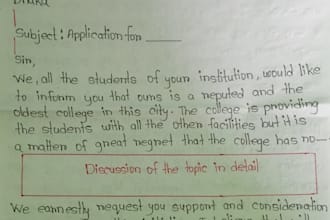 Dhaka
Subject: Application for ____
Sir,
We, all the students of your institution, would like
to inform you that ours is a reputed and the
oldest college in this city. The college is providing
the students with all the other facilities but it is
a matter of great regret that the college has no—
Discussion of the topic in detail
We earnestly request you support and consideration